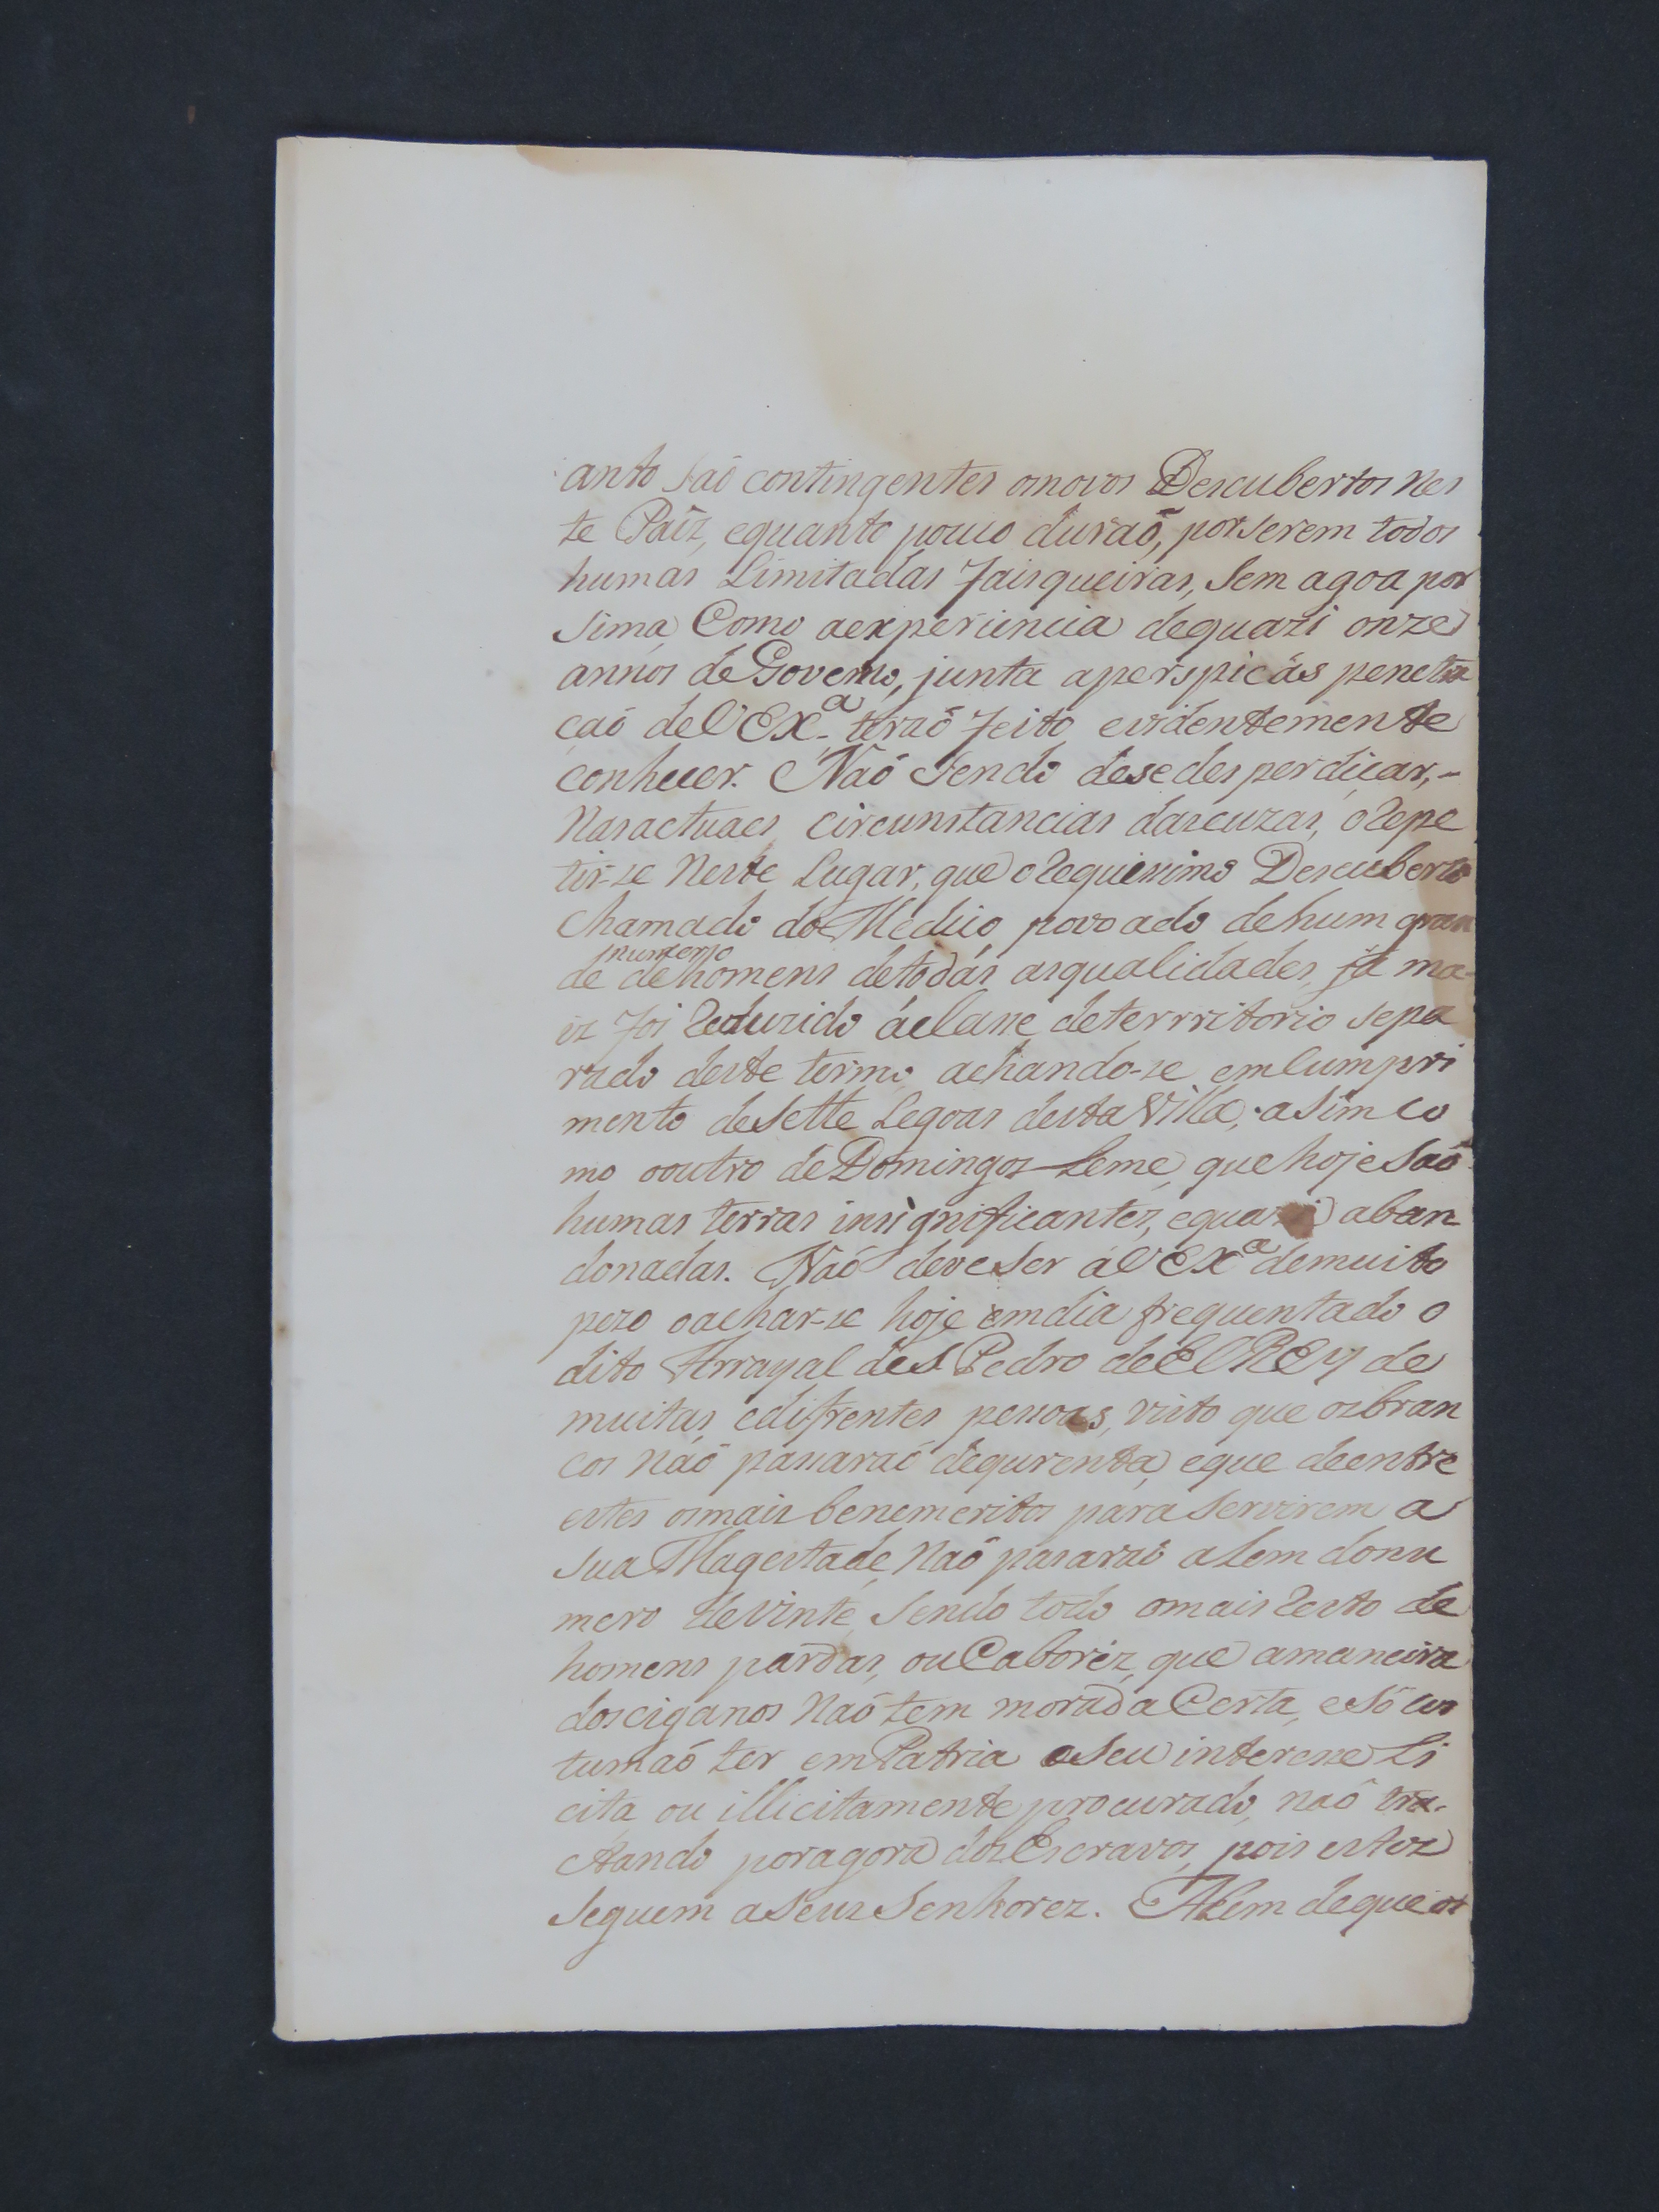 anto saõ contingentes os novos Descubertos nes
te Paîz, e quanto pouco duraõ, por serem todos
humas Limitadas faisqueiras, sem agoa por
sima, Como a experiencia de quazi onze
annos de Governo, junta a perspicás penetra
çaõ de V Exª. teraõ feito evidentemente
conhecer. Naõ sendo de se desperdiçar, -
nas actuaes circunstancias das cuzas, o repe
tir-se neste Lugar, que o requissimo Descuberto
chamado do Medico povoado de hum gran
numero
de de homens de todas as qualidades, já ma-
is foi reduzido á classe de terrritorio sepa
rado deste termo achando-se em Cumpri
mento de sette Legoas desta Villa; asim co
mo o outro de Domingos Leme, que hoje saõ
humas terras insignificantes, e quazi aban
donadas. Naõ deve ser a V Exª de muito
pezo o achar-se hoje em dia frequentado o
dito Arrayal de S Pedro de El REy de
muitas, e difrentes pessoas, visto que os bran
cos naõ passaraõ de qurenta, e que de entre
estes os mais benemeritos para servirem a
sua Magestade, naõ pasaraõ alem do nu
mero de vinte, sendo todo o mais resto de
homens pardas, ou Caborés, que a maneira
dos ciganos naõ tem morada Certa, e só cos
tumaõ ter em Patria o seu interesse Li
cita, ou illicitamente procurado, naõ tra-
ctando por agora dos Escravos, pois estes
seguem a seus Senhorez. Alem de que os